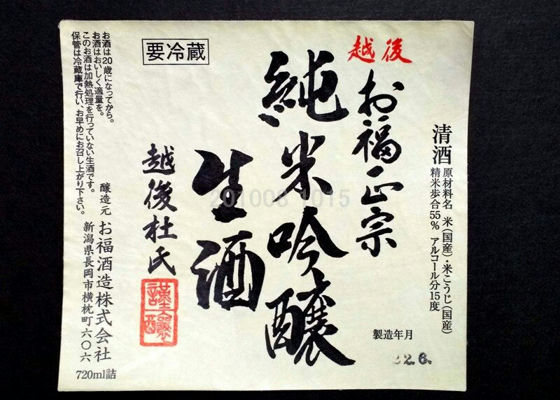 清酒
原材料名 米(国産)・米こうじ(国産)
精米歩合55% アルコール分15度
製造年月
22.6.
越後
お福正宗
純米吟醸
生酒
越後杜氏
謹醸
要冷蔵
お酒は20歳になってから。
お酒はおいしく適量を。
このお酒は加熱処理を行っていない生酒です。
保管は冷蔵庫で行い、お早めにお召し上がり下さい。
醸造元 お福酒造株式会社
新潟県長岡市横枕町六〇六
720ml詰
201003 1015